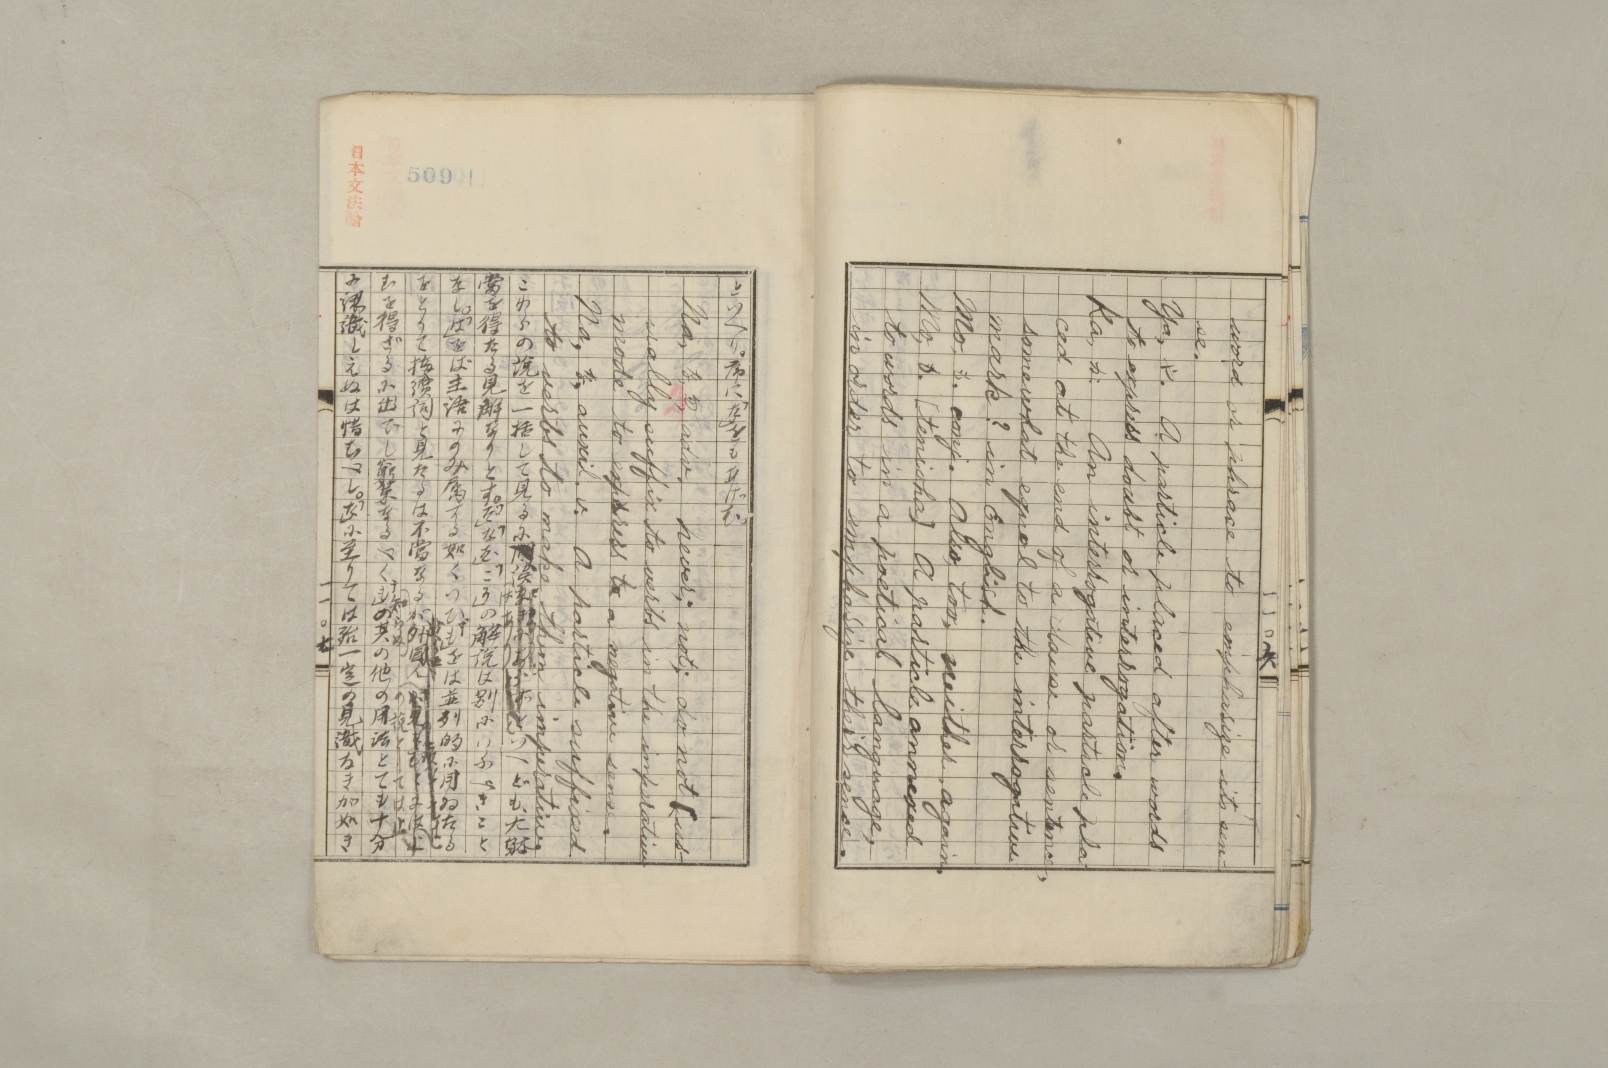 word or phrase to emphasize its sen-
se.
Ya, や. A particle placed after words
to express doubt or interrogation.
Ka, か. An interrogative particle pla-
ced at the end of a clause or sentence,
somewhat equal to the interrogative
mark ? in English.
Mo, も. conj. Also, too, neither, again.
Mo, も. [Tenioha] A particle annexed
to words in a poetical language,
in order to emphasize their sense.
一一〇六
Na, な, adv. never; not; do not [Us-
ually suffix to verbs in the imperative
mode to express a negative sense.
Na, な, auxil. v. A particle suffixed
to verbs to make them imperative.
これらの説を一括して見るに
当を得たる見解なりとす。
なし。ばをば主語にのみ属する如くいひもをは並列的に用ゐたる
をとりて接続詞と見たるは不当なる
むを得ざるに出でし
其の他の用法とても十分
に認識しえぬは惜むべし。
に至りては殆一定の見識なきが如き
一一〇七
日本文法論
5091